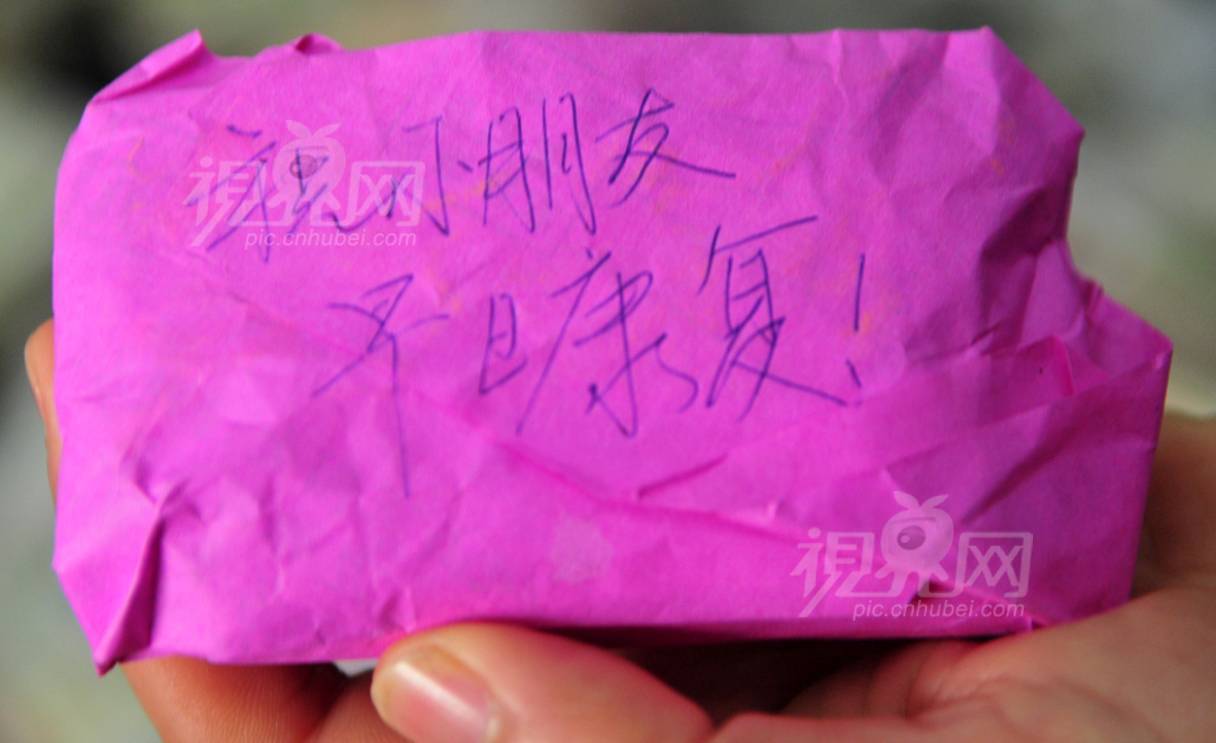 祝小朋友
早日康复！
视界网
pic.cnhubei.com
视界网
pic.cnhubei.com